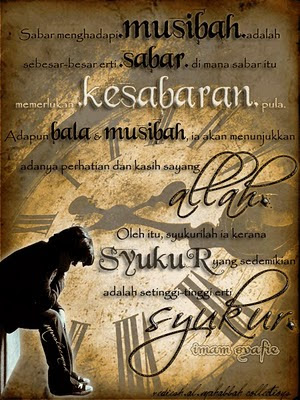 Sabar menghadapi musibah adalah
sebesar-besar erti sabar. di mana sabar itu
memerlukan kesabaran. pula.
Adapun bala & musibah, ia akan menunjukkan
adanya perhatian dan kasih sayang
allah.
Oleh itu, syukurilah ia kerana
SYukuR yang sedemikian
adalah setinggi-tinggi erti
syukur.
imam syafie